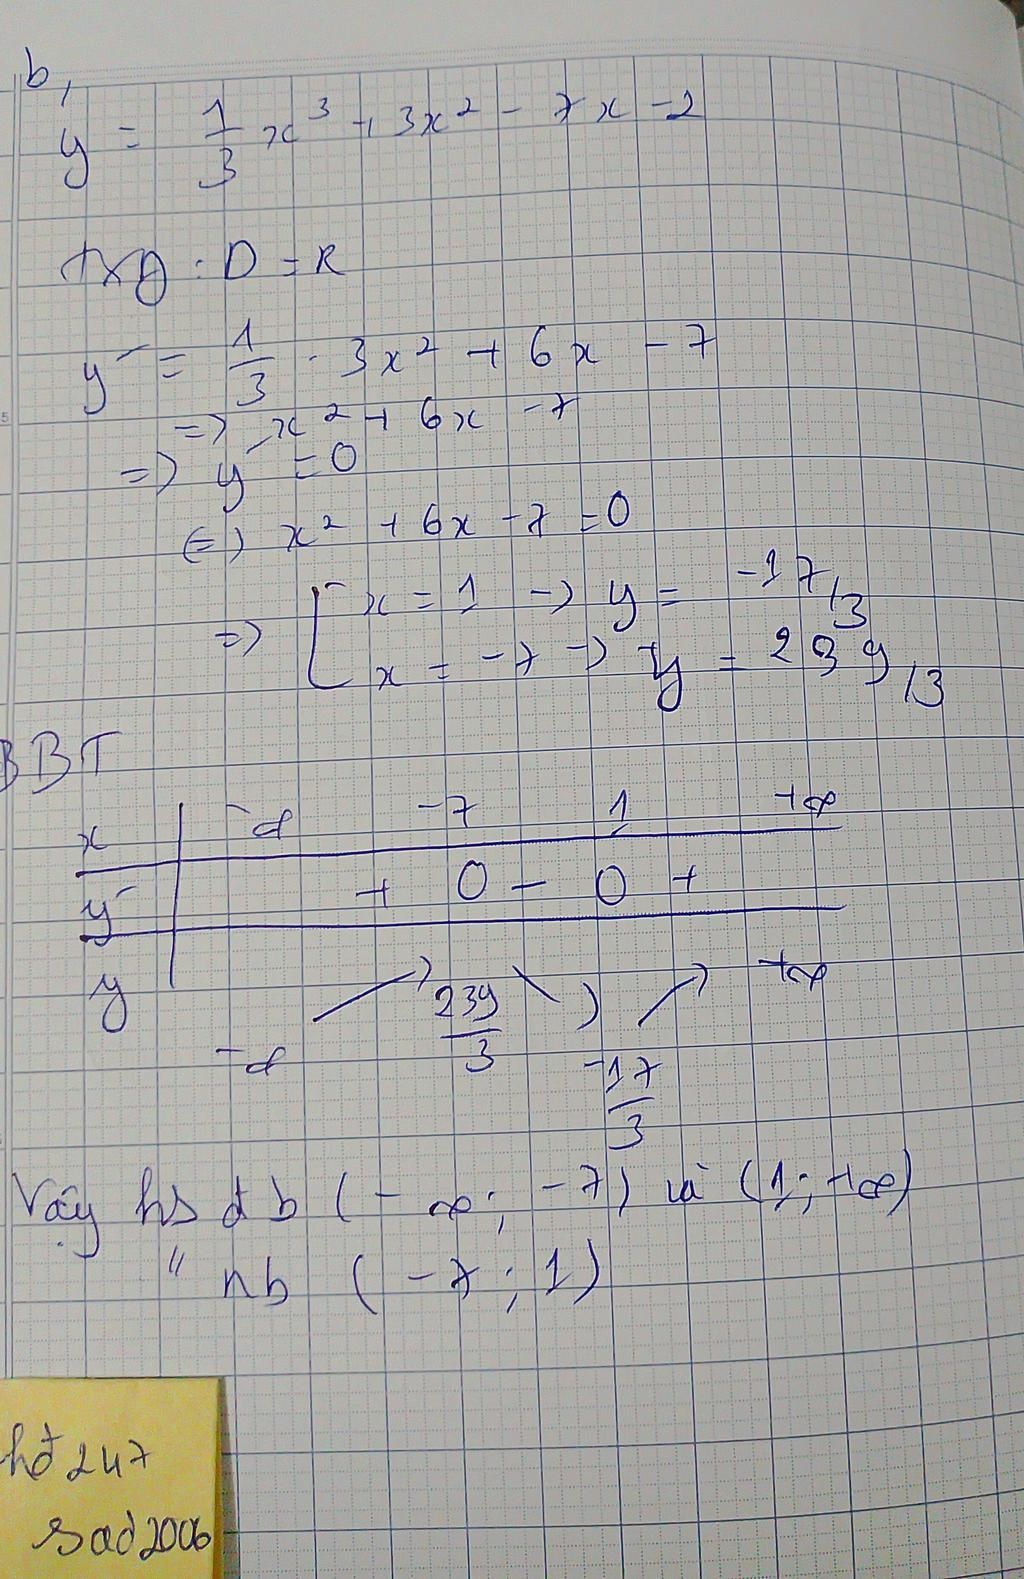 b,
y = 1/3 x³ + 3x² - 7x - 2
TXĐ : D = R
y' = 1/3 . 3x² + 6x - 7
=> x² + 6x - 7
=> y' = 0
<=> x² + 6x - 7 = 0
=> [ x = 1 -> y = -17/3
x = -7 -> y = 239/3
BBT
x | -∞ -7 1 +∞
y' | + 0 - 0 +
y | -∞ ↗ 239/3 ↘ -17/3 ↗ +∞
Vậy hs đb (-∞; -7) và (1; +∞)
" nb (-7; 1)
hớ 247
sad2006